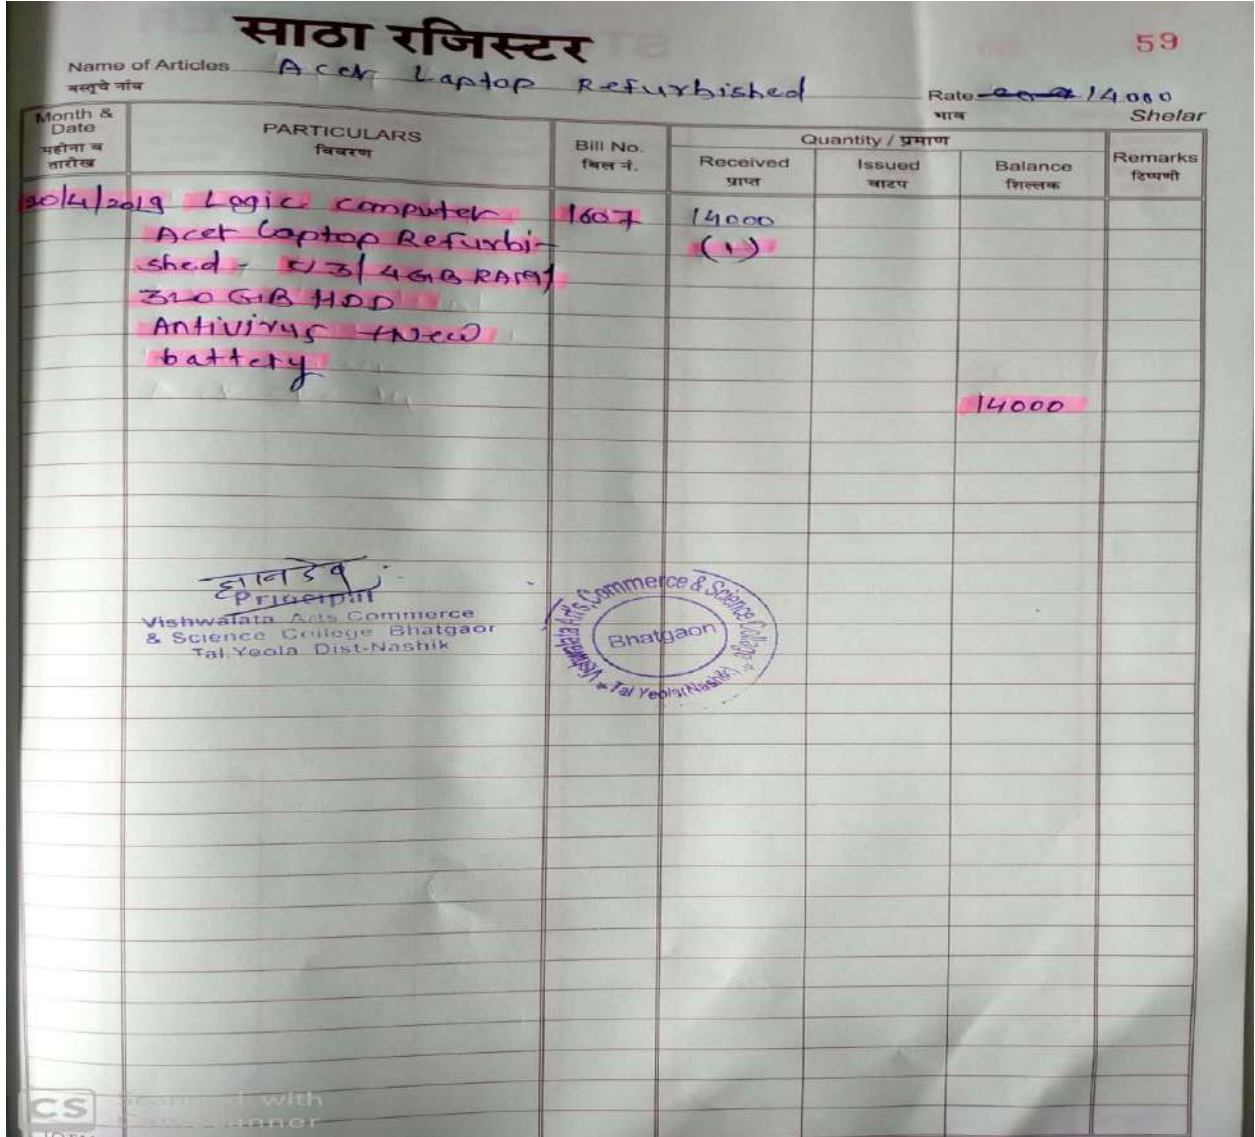 साठा रजिस्टर
59
Name of Articles Acer Laptop Refurbished
वस्तुचे नांव
Rate 14000
भाव
Shelar
Month & Date
महीना व तारीख
PARTICULARS
विवरण
Bill No.
बिल नं.
Quantity / प्रमाण
Received
प्राप्त
Issued
वाटप
Balance
शिल्लक
Remarks
टिप्पणी
20/4/2019 Logic computer 1607 14000
Acer Laptop Refurbi- (1)
shed - 3/ 4GB RAM/
320 GB HDD
Antivirus +New
battery
14000
Principal
Vishwalata Arts Commerce
& Science College Bhatgaon
Tal.Yeola Dist-Nashik
Vishwalata Arts, Commerce & Science College
Bhatgaon
Tal Yeola (Nashik)
CS Scanned with
CamScanner